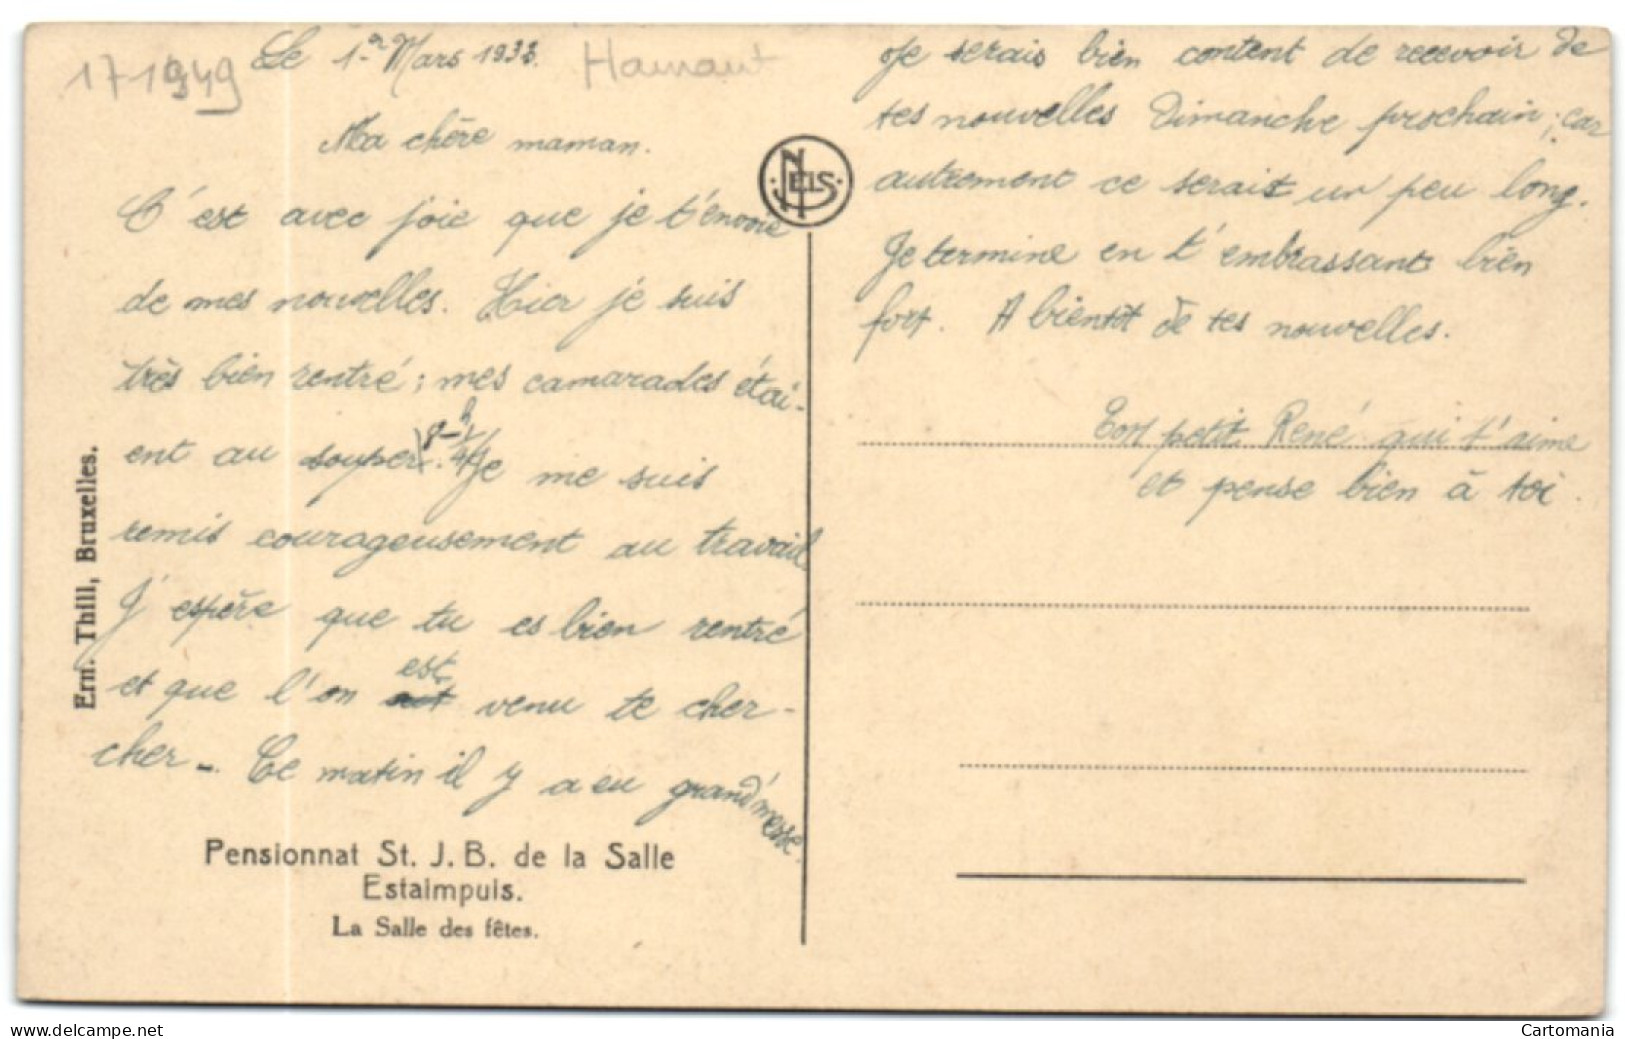 17 1949
Hainaut
Le 1er Mars 1933.
Ma chère maman.
C'est avec joie que je t'envoie
de mes nouvelles. Hier je suis
très bien rentré ; mes camarades étai-
ent au souper. Je me suis
remis courageusement au travail.
J'espère que tu es bien rentré
et que l'on est venu te cher-
cher -. Ce matin il y a eu grand'messe.
Pensionnat St. J. B. de la Salle
Estaimpuis.
La Salle des fêtes.
Ern. Thill, Bruxelles.
NELS
Je serais bien content de recevoir de
tes nouvelles Dimanche prochain ; car
autrement ce serait un peu long.
Je termine en t'embrassant bien
fort. A bientôt de tes nouvelles.
Ton petit René qui t'aime
et pense bien à toi.
delcampe.net
Cartomania